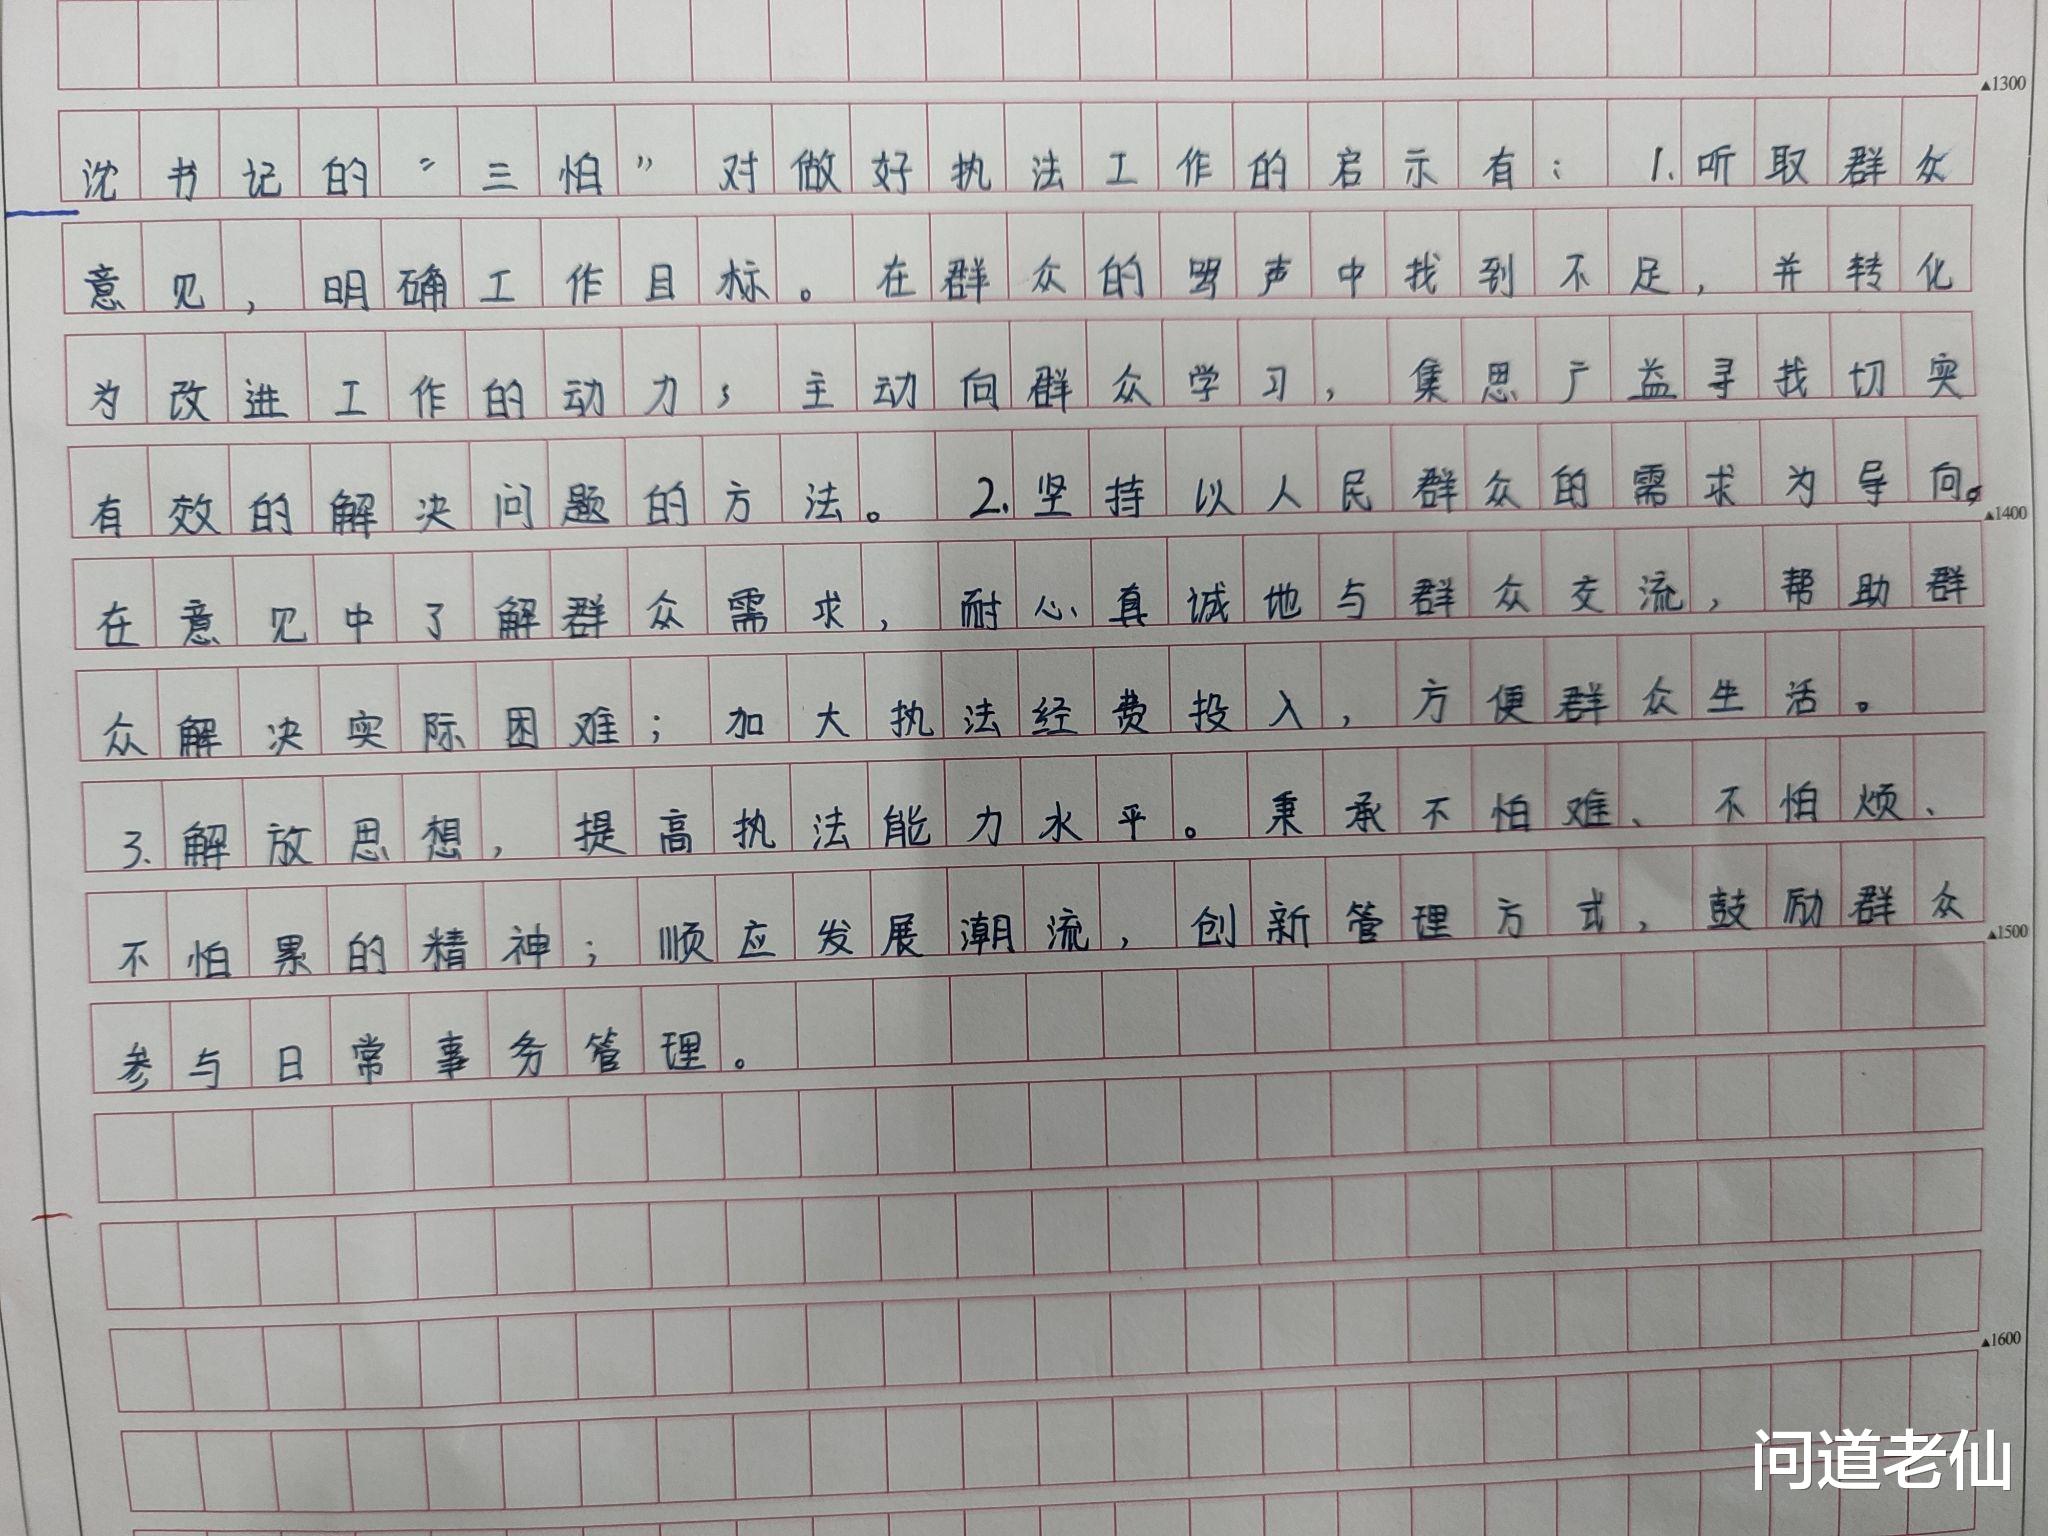 ▲1300
沈书记的“三怕”对做好执法工作的启示有：1.听取群众
意见，明确工作目标。在群众的骂声中找到不足，并转化
为改进工作的动力；主动向群众学习，集思广益寻找切实
有效的解决问题的方法。2.坚持以人民群众的需求为导向。
▲1400
在意见中了解群众需求，耐心真诚地与群众交流，帮助群
众解决实际困难；加大执法经费投入，方便群众生活。
3.解放思想，提高执法能力水平。秉承不怕难、不怕烦、
不怕累的精神；顺应发展潮流，创新管理方式，鼓励群众
▲1500
参与日常事务管理。
▲1600
问道老仙